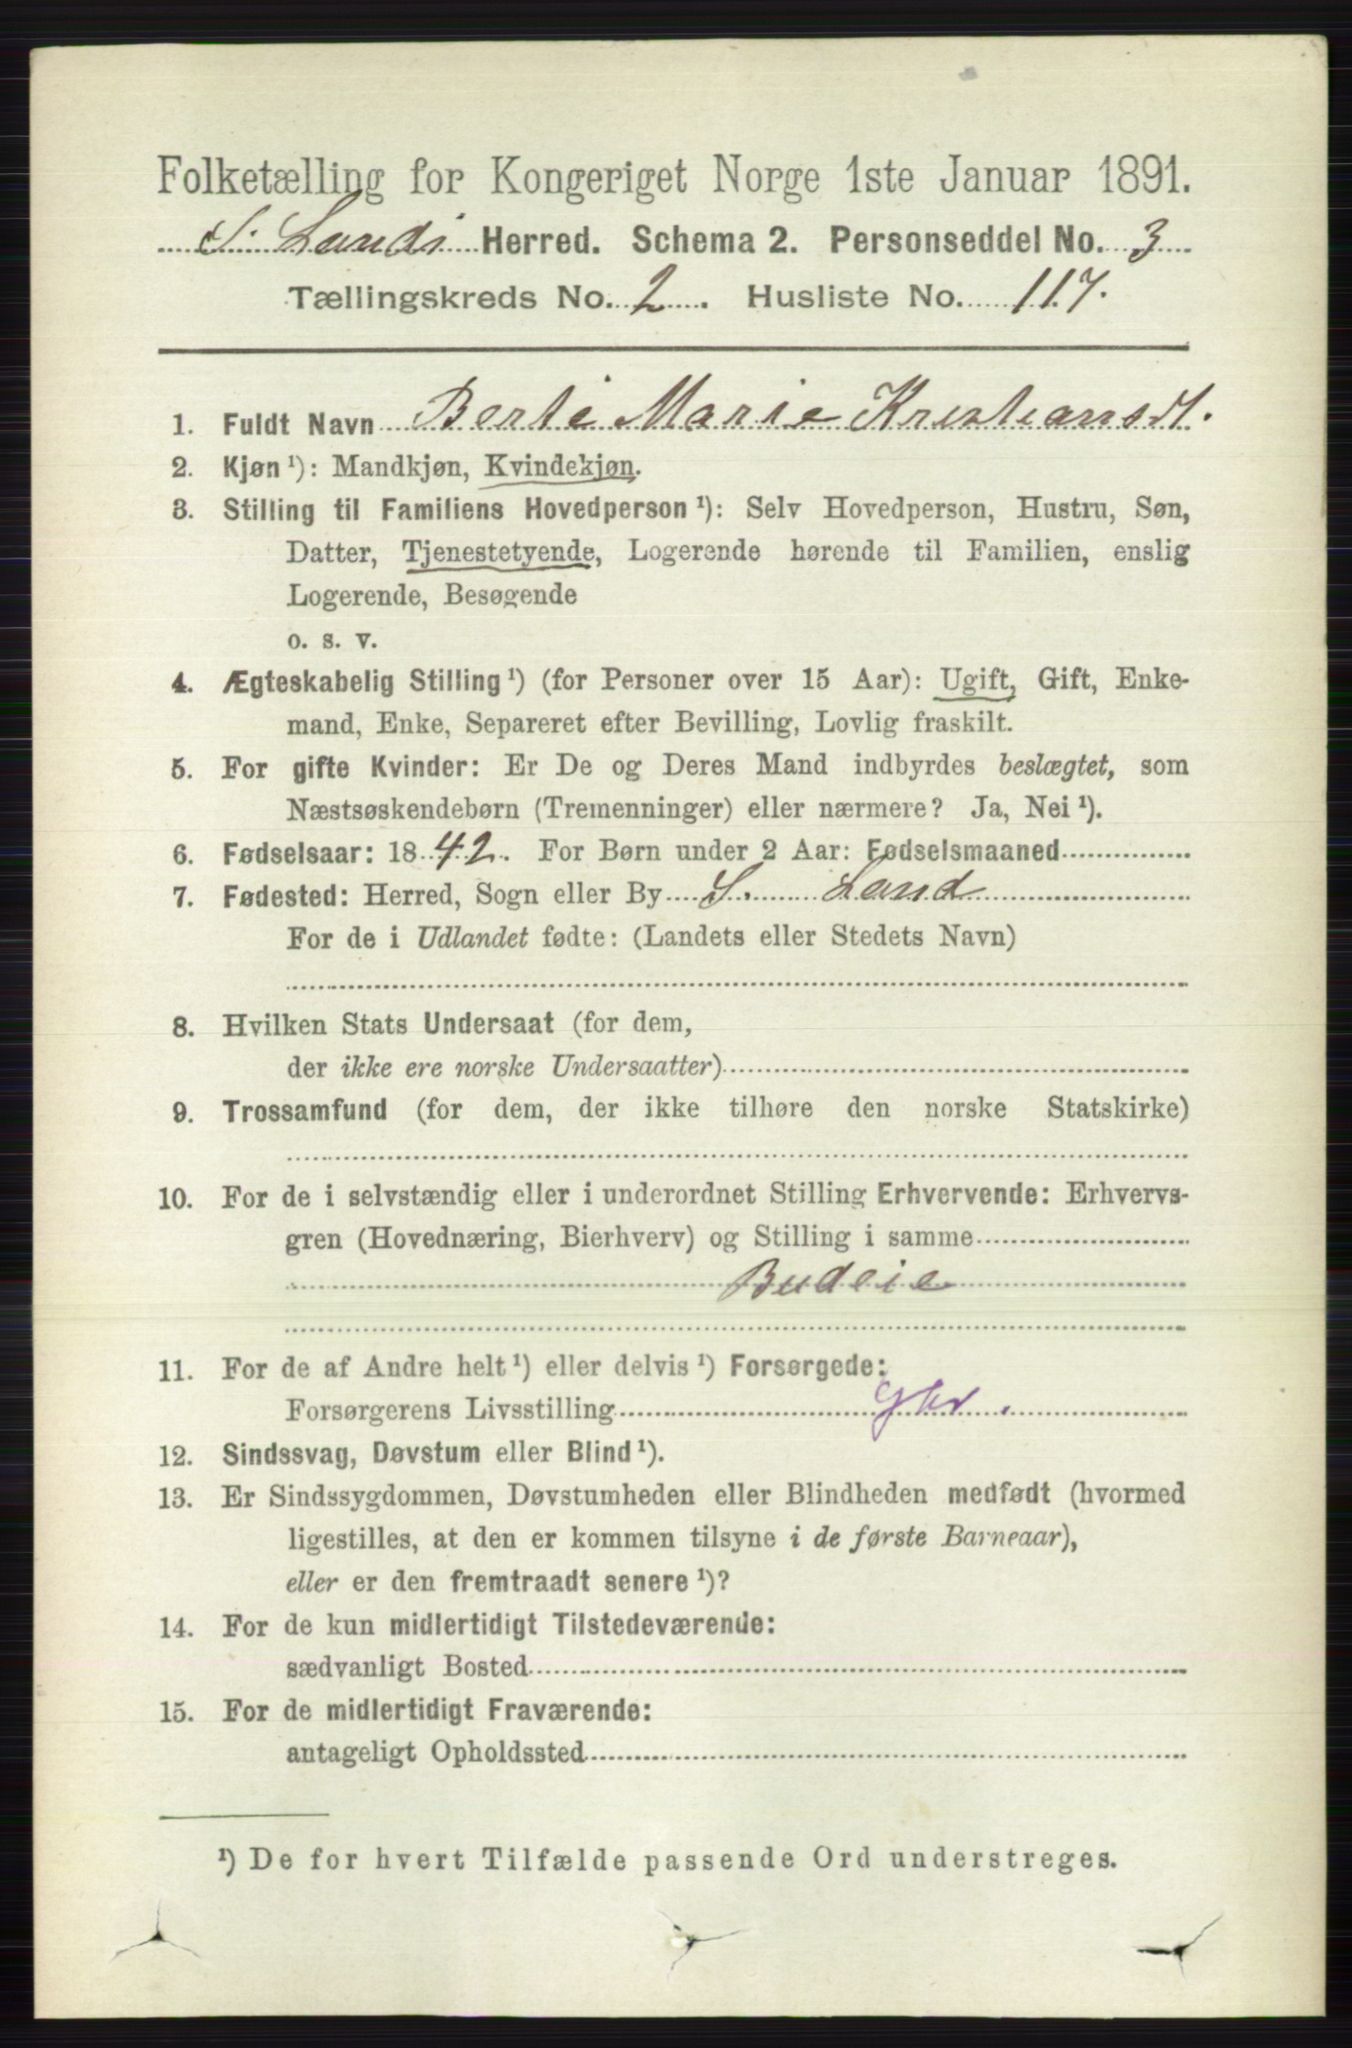 Folketælling for Kongeriget Norge 1ste Januar 1891.
S. Lands Herred. Schema 2. Personseddel No. 3
Tællingskreds No. 2. Husliste No. 117.
1. Fuldt Navn Berte Marie Kristiansdt.
2. Kjøn ¹): Mandkjøn, Kvindekjøn.
3. Stilling til Familiens Hovedperson ¹): Selv Hovedperson, Hustru, Søn,
Datter, Tjenestetyende, Logerende hørende til Familien, enslig
Logerende, Besøgende
o. s. v.
4. Ægteskabelig Stilling ¹) (for Personer over 15 Aar): Ugift, Gift, Enke-
mand, Enke, Separeret efter Bevilling, Lovlig fraskilt.
5. For gifte Kvinder: Er De og Deres Mand indbyrdes beslægtet, som
Næstsøskendebørn (Tremenninger) eller nærmere? Ja, Nei ¹).
6. Fødselsaar: 1842. For Børn under 2 Aar: Fødselsmaaned
7. Fødested: Herred, Sogn eller By S. Land
For de i Udlandet fødte: (Landets eller Stedets Navn)
8. Hvilken Stats Undersaat (for dem,
der ikke ere norske Undersaatter)
9. Trossamfund (for dem, der ikke tilhøre den norske Statskirke)
10. For de i selvstændig eller i underordnet Stilling Erhvervende: Erhvervs-
gren (Hovednæring, Bierhverv) og Stilling i samme
Budeie
11. For de af Andre helt ¹) eller delvis ¹) Forsørgede:
Forsørgerens Livsstilling Gbr.
12. Sindssvag, Døvstum eller Blind ¹).
13. Er Sindssygdommen, Døvstumheden eller Blindheden medfødt (hvormed
ligestilles, at den er kommen tilsyne i de første Barneaar),
eller er den fremtraadt senere ¹)?
14. For de kun midlertidigt Tilstedeværende:
sædvanligt Bosted
15. For de midlertidigt Fraværende:
antageligt Opholdssted
¹) De for hvert Tilfælde passende Ord understreges.